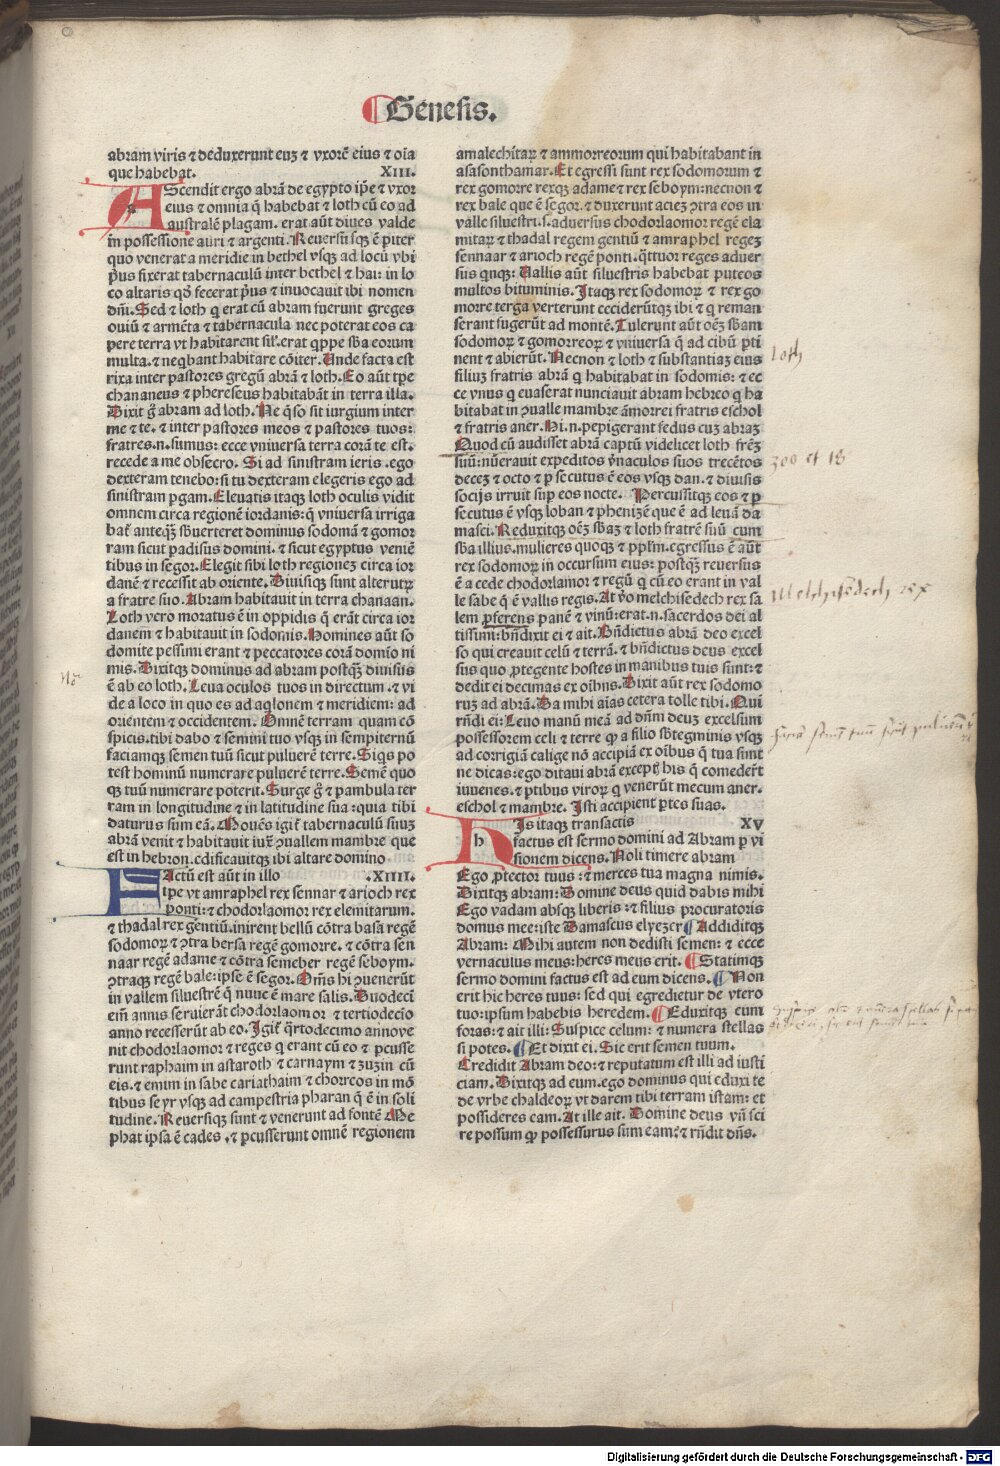 Genesis.
abram viris ⁊ deduxerunt euꝫ ⁊ vxorē eius ⁊ oīa
que habebat. XIII.
AScendit ergo abrā de egypto ip̄e ⁊ vxor
eius ⁊ omnia q̄ habebat ⁊ loth cū eo ad
australē plagam. erat aūt diues valde
in possessione auri ⁊ argenti. Reuersusqꝫ ē p iter
quo venerat a meridie in bethel vsqꝫ ad locū vbi
p̄us fixerat tabernaculū inter bethel ⁊ hai: in lo
co altaris qđ fecerat p̄us ⁊ inuocauit ibi nomen
dn̄i. Sed ⁊ loth q̄ erat cū abram fuerunt greges
ouiū ⁊ armēta ⁊ tabernacula nec poterat eos ca
pere terra vt habitarent sil̄. erat qppe sb̄a eorum
multa. ⁊ neqbant habitare cōiter. Unde facta est
rixa inter pastores gregū abrā ⁊ loth. Eo aūt tp̄e
chananeus ⁊ phereseus habitabāt in terra illa.
Dixit g̊ abram ad loth. Ne q̄so sit iurgium inter
me ⁊ te. ⁊ inter pastores meos ⁊ pastores tuos:
fratres.n. sumus: ecce vniuersa terra corā te est.
recede a me obsecro. Si ad sinistram ieris .ego
dexteram tenebo: si tu dexteram elegeris ego ad
sinistram pgam. Eleuatis itaqꝫ loth oculis vidit
omnem circa regionē iordanis: q̄ vniuersa irriga
bat̄ anteqꝫ̄ sb̄uerteret dominus sodomā ⁊ gomor
ram sicut padisus domini. ⁊ sicut egyptus veniē
tibus in segor. Elegit sibi loth regionez circa ior
danē ⁊ recessit ab oriente. Diuisiqꝫ sunt alterutꝝ
a fratre suo. Abram habitauit in terra chanaan.
Loth vero moratus ē in oppidis q̄ erāt circa ior
danem ⁊ habitauit in sodomis. Homines aūt so
domite pessimi erant ⁊ peccatores corā domio ni
mis. Dixitqꝫ dominus ad abram postqꝫ̄ diuisus
ē ab eo loth. Leua oculos tuos in directum .⁊ vi
de a loco in quo es ad aqlonem ⁊ meridiem: ad
orientem ⁊ occidentem. Omnē terram quam cō
spicis. tibi dabo ⁊ semini tuo vsqꝫ in sempiternū
faciamqꝫ semen tuū sicut puluerē terre. Siqs po
test hominū numerare puluerē terre. Semē quo
qꝫ tuū numerare poterit. Surge g̊ ⁊ pambula ter
ram in longitudine ⁊ in latitudine sua: quia tibi
daturus sum eā. Mouēs igit̄ tabernaculū suuꝫ
abrā venit ⁊ habitauit iux̄ ꝯuallem mambre que
est in hebron. edificauitqꝫ ibi altare domino
FActū est aūt in illo .XIIII.
tpe vt amraphel rex sennar ⁊ arioch rex
ponti: ⁊ chodorlaomor rex elemitarum.
⁊ thadal rex gentiū. inirent bellū cōtra basa regē
sodomoꝝ ⁊ ꝯtra bersa regē gomorre. ⁊ cōtra sen
naar regē adame ⁊ cōtra semeber regē seboym.
ꝯtraqꝫ regē bale: ipse ē segor. Om̄s hi ꝯuenerūt
in vallem siluestrē q̄ nunc ē mare salis. Duodeci
em̄ annis seruierāt chodorlaomor ⁊ tertiodecio
anno recesserūt ab eo. Igit̄ q̄rtodecimo anno ve
nit chodorlaomor ⁊ reges q̄ erant cū eo ⁊ pcusse
runt raphaim in astaroth ⁊ carnaym ⁊ zuzin cū
eis. ⁊ emim in sabe cariathaim ⁊ chorreos in mō
tibus seyr vsqꝫ ad campestria pharan q̄ ē in soli
tudine. Reuersiqꝫ sunt ⁊ venerunt ad fontē Me
phat ipsa ē cades .⁊ pcusserunt omnē regionem
amalechitaꝝ ⁊ ammorreorum qui habitabant in
asasonthamar. Et egressi sunt rex sodomorum ⁊
rex gomorre rexqꝫ adame ⁊ rex seboym: necnon ⁊
rex bale que ē segor. ⁊ duxerunt acieꝫ ꝯtra eos in
valle siluestri. s. aduersus chodorlaomor regē ela
mitaꝝ ⁊ thadal regem gentiū ⁊ amraphel regeꝫ
sennaar ⁊ arioch regē ponti. q̄ttuor reges aduer
sus qnqꝫ: Uallis aūt siluestris habebat puteos
multos bituminis. Itaqꝫ rex sodomoꝝ ⁊ rex go
morre terga verterunt cecideruntqꝫ ibi ⁊ q̄ reman
serant fugerūt ad montē. Tulerunt aūt oēꝫ sb̄am
sodomoꝝ ⁊ gomorreoꝝ ⁊ vniuersa q̄ ad cibū pti
nent ⁊ abierūt. Necnon ⁊ loth ⁊ substantiaꝫ eius
filiuꝫ fratris abrā q̄ habitabat in sodomis: ⁊ ec
ce vnus q̄ euaserat nunciauit abram hebreo q̄ ha
bitabat in ꝯualle mambre āmorrei fratris eschol
⁊ fratris aner. Hi .n. pepigerant fedus cuꝫ abraꝫ
Quod cū audisset abrā captū videlicet loth frēꝫ
suū: nūerauit expeditos v̄naculos suos trecētos
deceꝫ ⁊ octo ⁊ p secutus ē eos vsqꝫ dan. ⁊ diuisis
socijs irruit sup eos nocte. Percussitqꝫ eos ⁊ p
secutus ē vsqꝫ loban ⁊ phenizē que ē ad leuā da
masci. Reduxitqꝫ oēꝫ sb̄aꝫ ⁊ loth fratrē suū cum
sb̄a illius. mulieres quoqꝫ ⁊ ppl̄m. egressus ē aūt
rex sodomoꝝ in occursum eius: postqꝫ̄ reuersus
ē a cede chodorlaomor ⁊ regū q̄ cū eo erant in val
le sabe q̄ ē vallis regis. At v̊o melchisedech rex sa
lem pferens panē ⁊ vinū: erat .n. sacerdos dei al
tissimi: bn̄dixit ei ⁊ ait. Bn̄dictus abrā deo excel
so qui creauit celū ⁊ terrā. ⁊ bn̄dictus deus excel
sus quo ꝓtegente hostes in manibus tuis sunt: ⁊
dedit ei decimas ex oīb̄us. Dixit aūt rex sodomo
ruꝫ ad abrā. Da mihi aīas cetera tolle tibi. Qui
rn̄di ei: Leuo manū meā ad dn̄m deuꝫ excelsum
possessorem celi ⁊ terre ꝙ a filo sb̄tegminis vsqꝫ
ad corrigiā calige nō accipiā ex oībus q̄ tua sunt
ne dicas: ego ditaui abrā except̄ his q̄ comederūt
iuuenes. ⁊ ptibus viroꝝ q̄ venerūt mecum aner.
eschol ⁊ mambre. Isti accipient ptes suas.
HIs itaqꝫ transactis XV
factus est sermo domini ad Abram p vi
sionem dicens. Noli timere abram
Ego ꝓtector tuus: ⁊ merces tua magna nimis.
Dixitqꝫ abram: Domine deus quid dabis mihi
Ego vadam absqꝫ liberis: ⁊ filius procuratoris
domus mee: iste Damascus elyezer Addiditqꝫ
Abram: Mihi autem non dedisti semen: ⁊ ecce
vernaculus meus: heres meus erit. Statimqꝫ
sermo domini factus est ad eum dicens. Non
erit hic heres tuus: sed qui egredietur de vtero
tuo: ipsum habebis heredem. Eduxitqꝫ eum
foras: ⁊ ait illi: Suspice celum: ⁊ numera stellas
si potes. Et dixit ei. Sic erit semen tuum.
Credidit Abram deo: ⁊ reputatum est illi ad iusti
ciam. Dixitqꝫ ad eum. ego dominus qui eduxi te
de vrbe chaldeoꝝ vt darem tibi terram istam: et
possideres eam. At ille ait. Domine deus vn̄ sci
re possum ꝙ possessurus sum eam: ⁊ rn̄dit dn̄s.
loth
300 et 18
Melchisedech rex
Digitalisierung gefördert durch die Deutsche Forschungsgemeinschaft - DFG